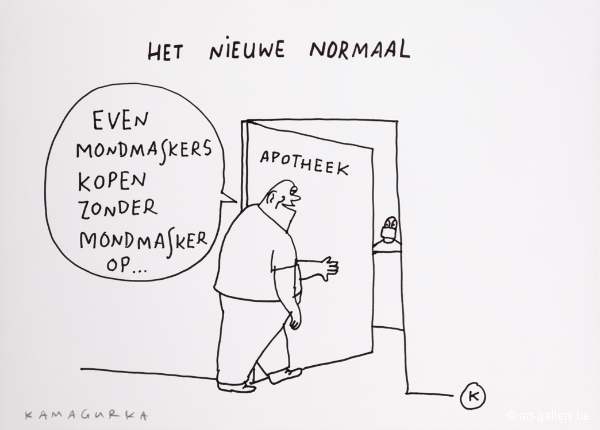 HET NIEUWE NORMAAL
EVEN
MONDMASKERS
KOPEN
ZONDER
MONDMASKER
OP...
APOTHEEK
K
KAMAGURKA
© art-gallery.be